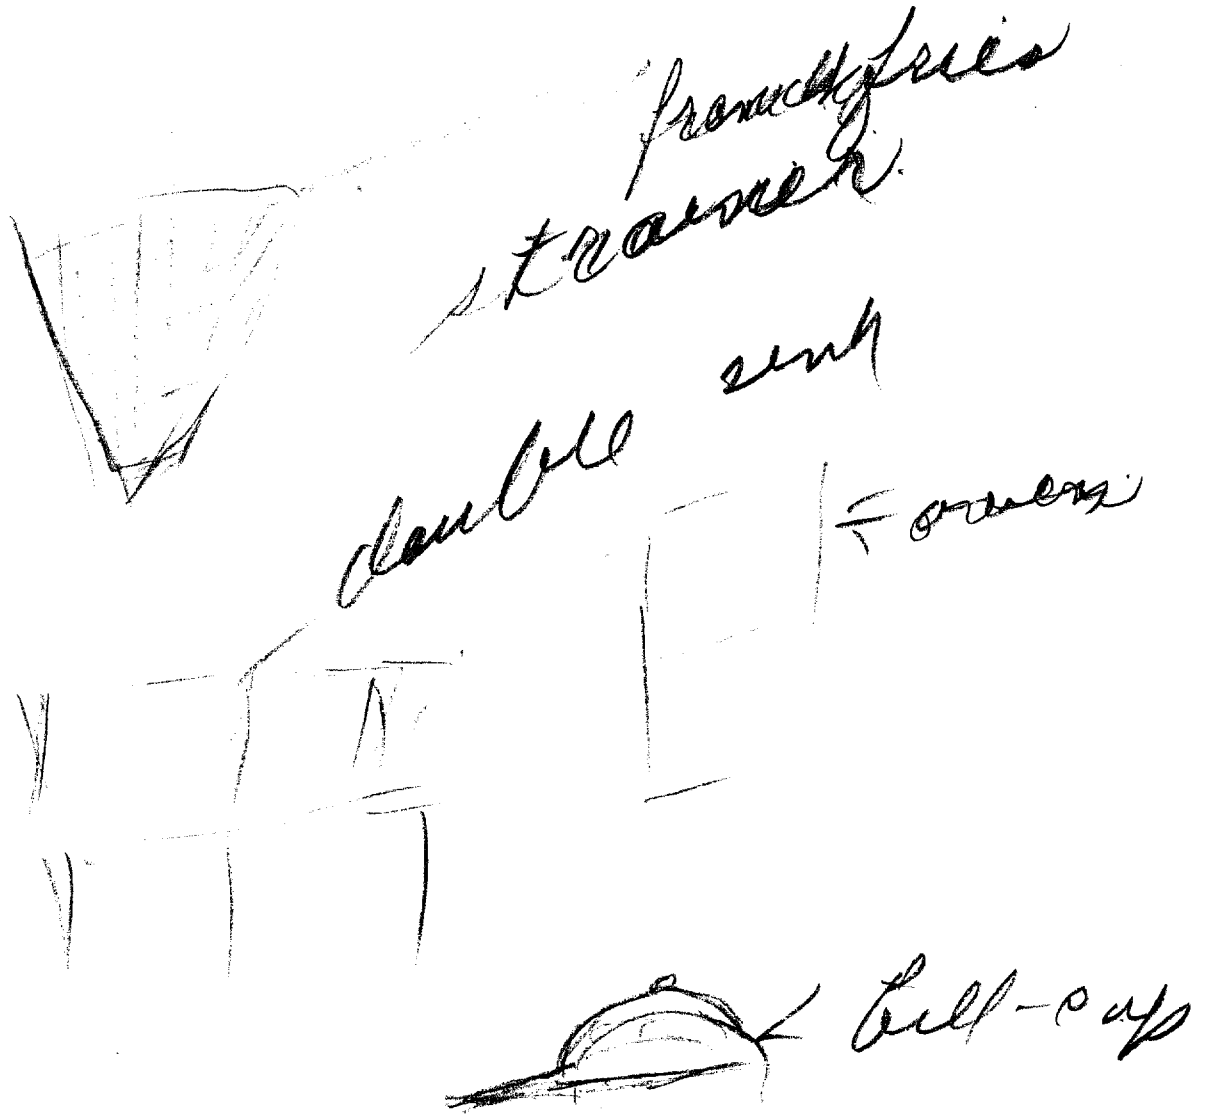 french fries
strainer
double sink
oven
Bill-cap